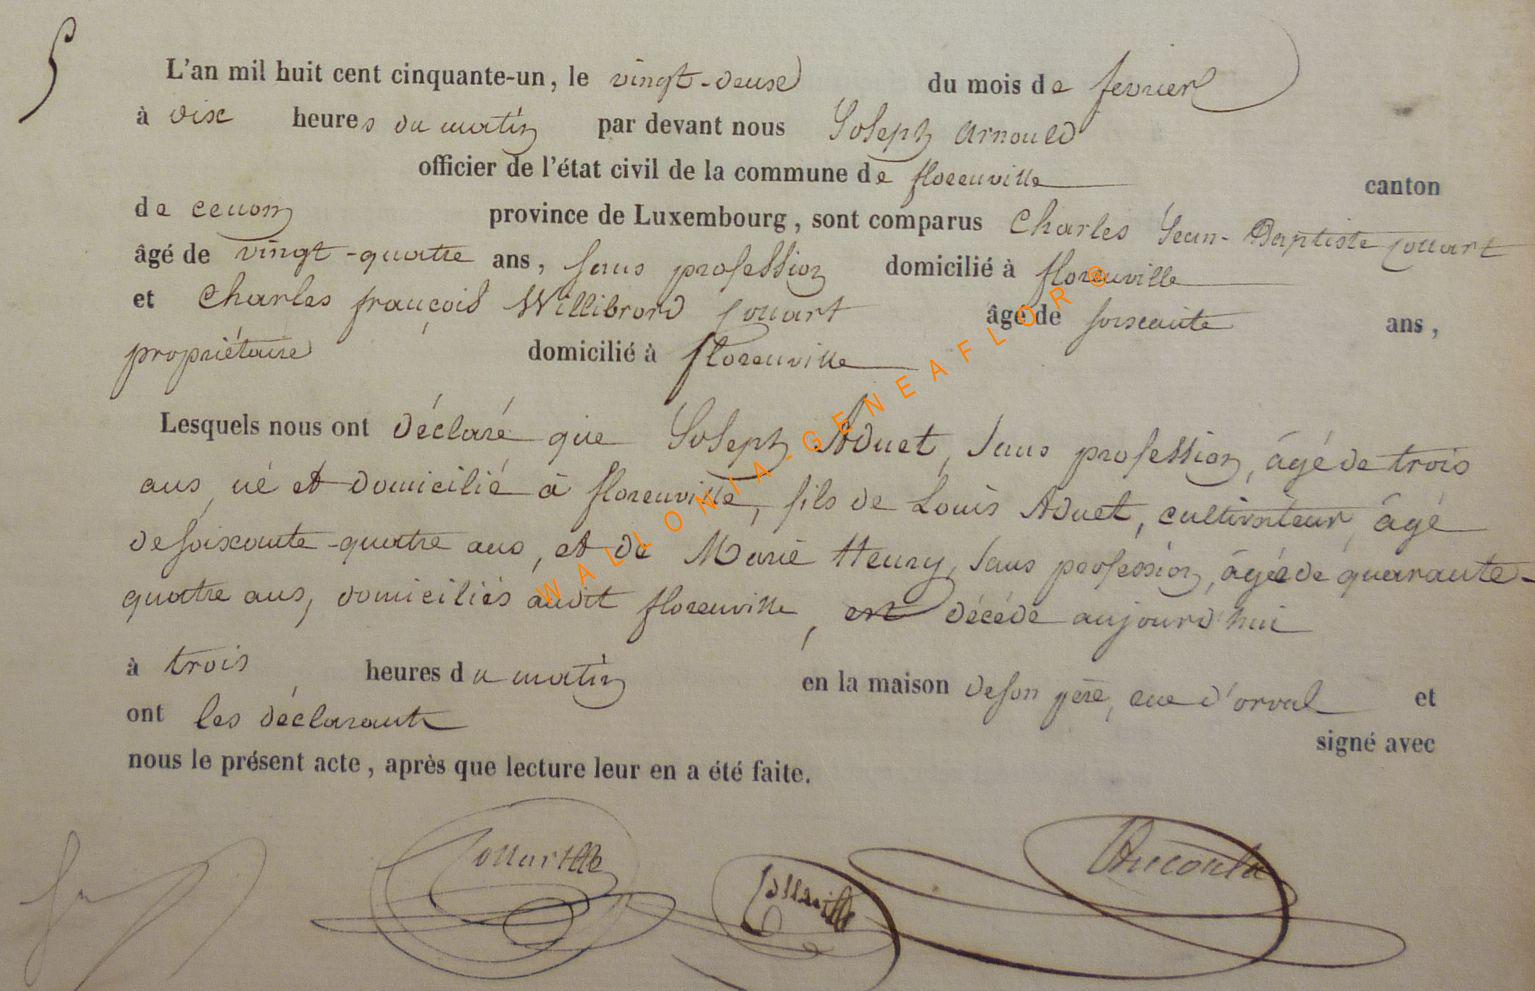 5
L'an mil huit cent cinquante-un, le vingt-deux du mois de fevrier
à dix heures du matin par devant nous Joseph Arnould
officier de l'état civil de la commune de florenville canton
de province de Luxembourg, sont comparus Charles Jean-Baptiste Collart
âgé de vingt-quatre ans, sans profession domicilié à florenville
et Charles françois Willibrord Collart âgé de soixante ans,
propriétaire domicilié à florenville
Lesquels nous ont déclaré que Joseph Aduet, sans profession, âgé de trois
ans, né et domicilié à florenville, fils de Louis Aduet, cultivateur, âgé
de soixante-quatre ans, et de Marie Henry, sans profession, âgée de quarante-
quatre ans, domiciliés audit florenville, est décédé aujourd'hui
à trois heures du matin en la maison de son père, rue d'orval et
ont les déclarants signé avec
nous le présent acte, après que lecture leur en a été faite.
WALLONIA-GENEAFLOR©